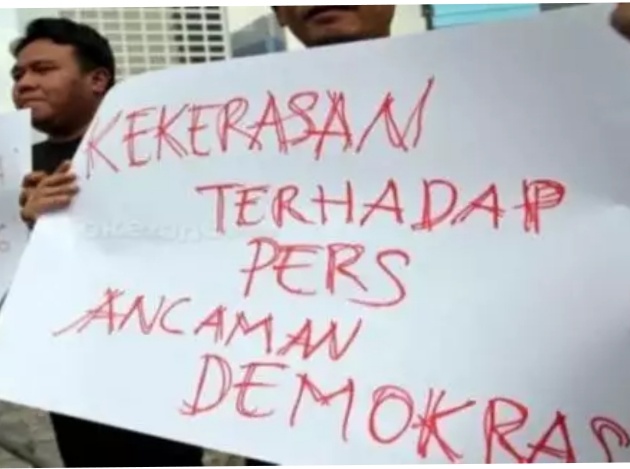 KEKERASAN
TERHADAP
PERS
ANCAMAN
DEMOKRAS